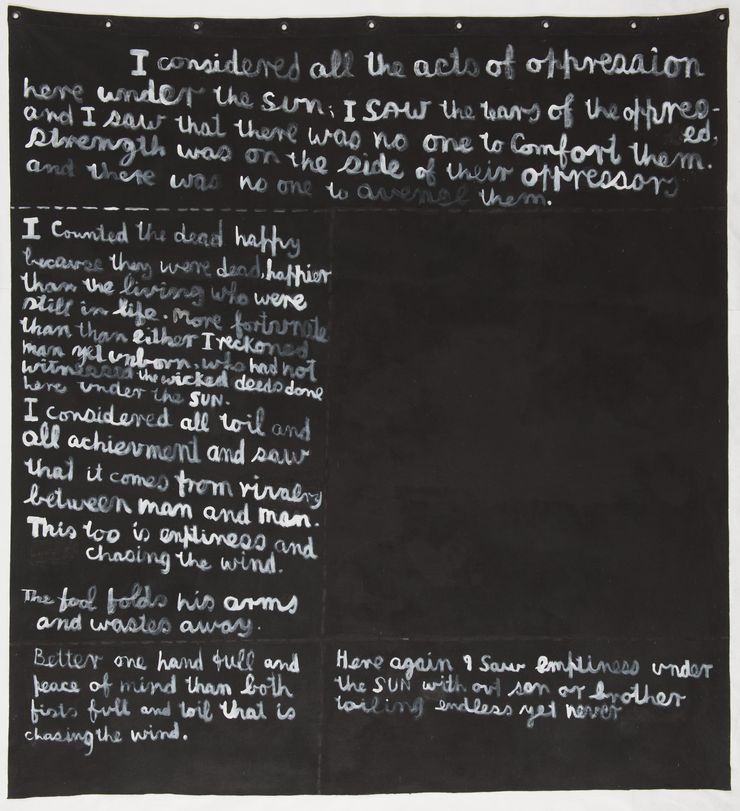 I considered all the acts of oppression
here under the SUN; I SAW the tears of the oppres-
ed,
and I saw that there was no one to Comfort them.
Strength was on the side of their oppressors
and there was no one to avenge them.
I Counted the dead happy
because they were dead, happier
than the living who were
still in life. More fortunate
than than either I reckoned
man yet unborn, who had not
witnessed the wicked deeds done
here under the SUN.
I considered all toil and
all achievment and saw
that it comes from rivalry
between man and man.
This too is emptiness and
chasing the wind.
The fool folds his arms
and wastes away.
Better one hand full and
peace of mind than both
fists full and toil that is
chasing the wind.
Here again I saw emptiness under
the SUN with out son or brother
toiling endless yet never